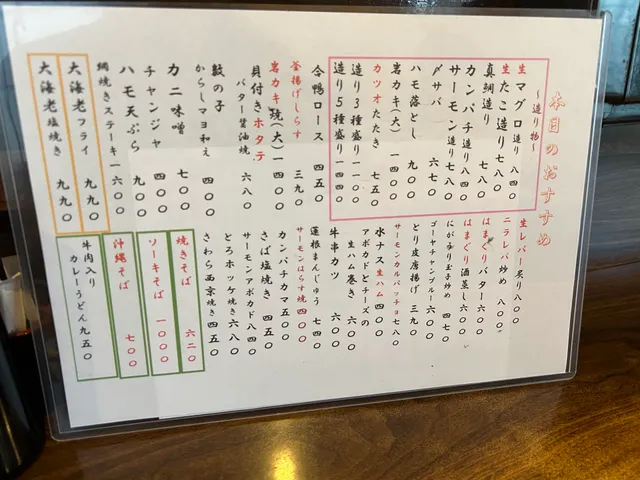 本日のおすすめ
～造り物～
生マグロ造り 八四〇
生たこ造り 七八〇
真鯛造り 七八〇
カンパチ造り 八四〇
サーモン造り 七八〇
〆サバ 六七〇
ハモ落とし 九〇〇
岩カキ(大) 一四〇〇
カツオたたき 七五〇
造り3種盛り 一一〇〇
造り5種盛り 一四〇〇
合鴨ロース 四五〇
釜揚げしらす 三九〇
岩カキ焼(大) 一四〇〇
貝付きホタテ
バター醤油焼 六八〇
数の子
からしマヨ和え 四〇〇
カニ味噌 七〇〇
チャンジャ 四〇〇
ハモ天ぷら 九〇〇
網焼きステーキ 一六〇〇
大海老フライ 九九〇
大海老塩焼き 九九〇
生レバー炙り 八〇〇
ニラレバ炒め 八〇〇
はまぐりバター 六〇〇
はまぐり酒蒸し 六〇〇
にがうり玉子炒め 四七〇
ゴーヤチャンプルー 六〇〇
とり皮唐揚げ 三九〇
サーモンカルパッチョ 七八〇
水ナス生ハム 四八〇
アボカドとチーズの
生ハム巻き 六〇〇
牛串カツ 六〇〇
蓮根まんじゅう 七四〇
サーモンはらす焼 四〇〇
カンパチカマ 五〇〇
さば塩焼き 四五〇
サーモンアボカド 八四〇
とろホッケ焼き 六八〇
さわら西京焼き 四五〇
焼きそば 六二〇
ソーキそば 一〇〇〇
沖縄そば 七〇〇
牛肉入り
カレーうどん 九五〇